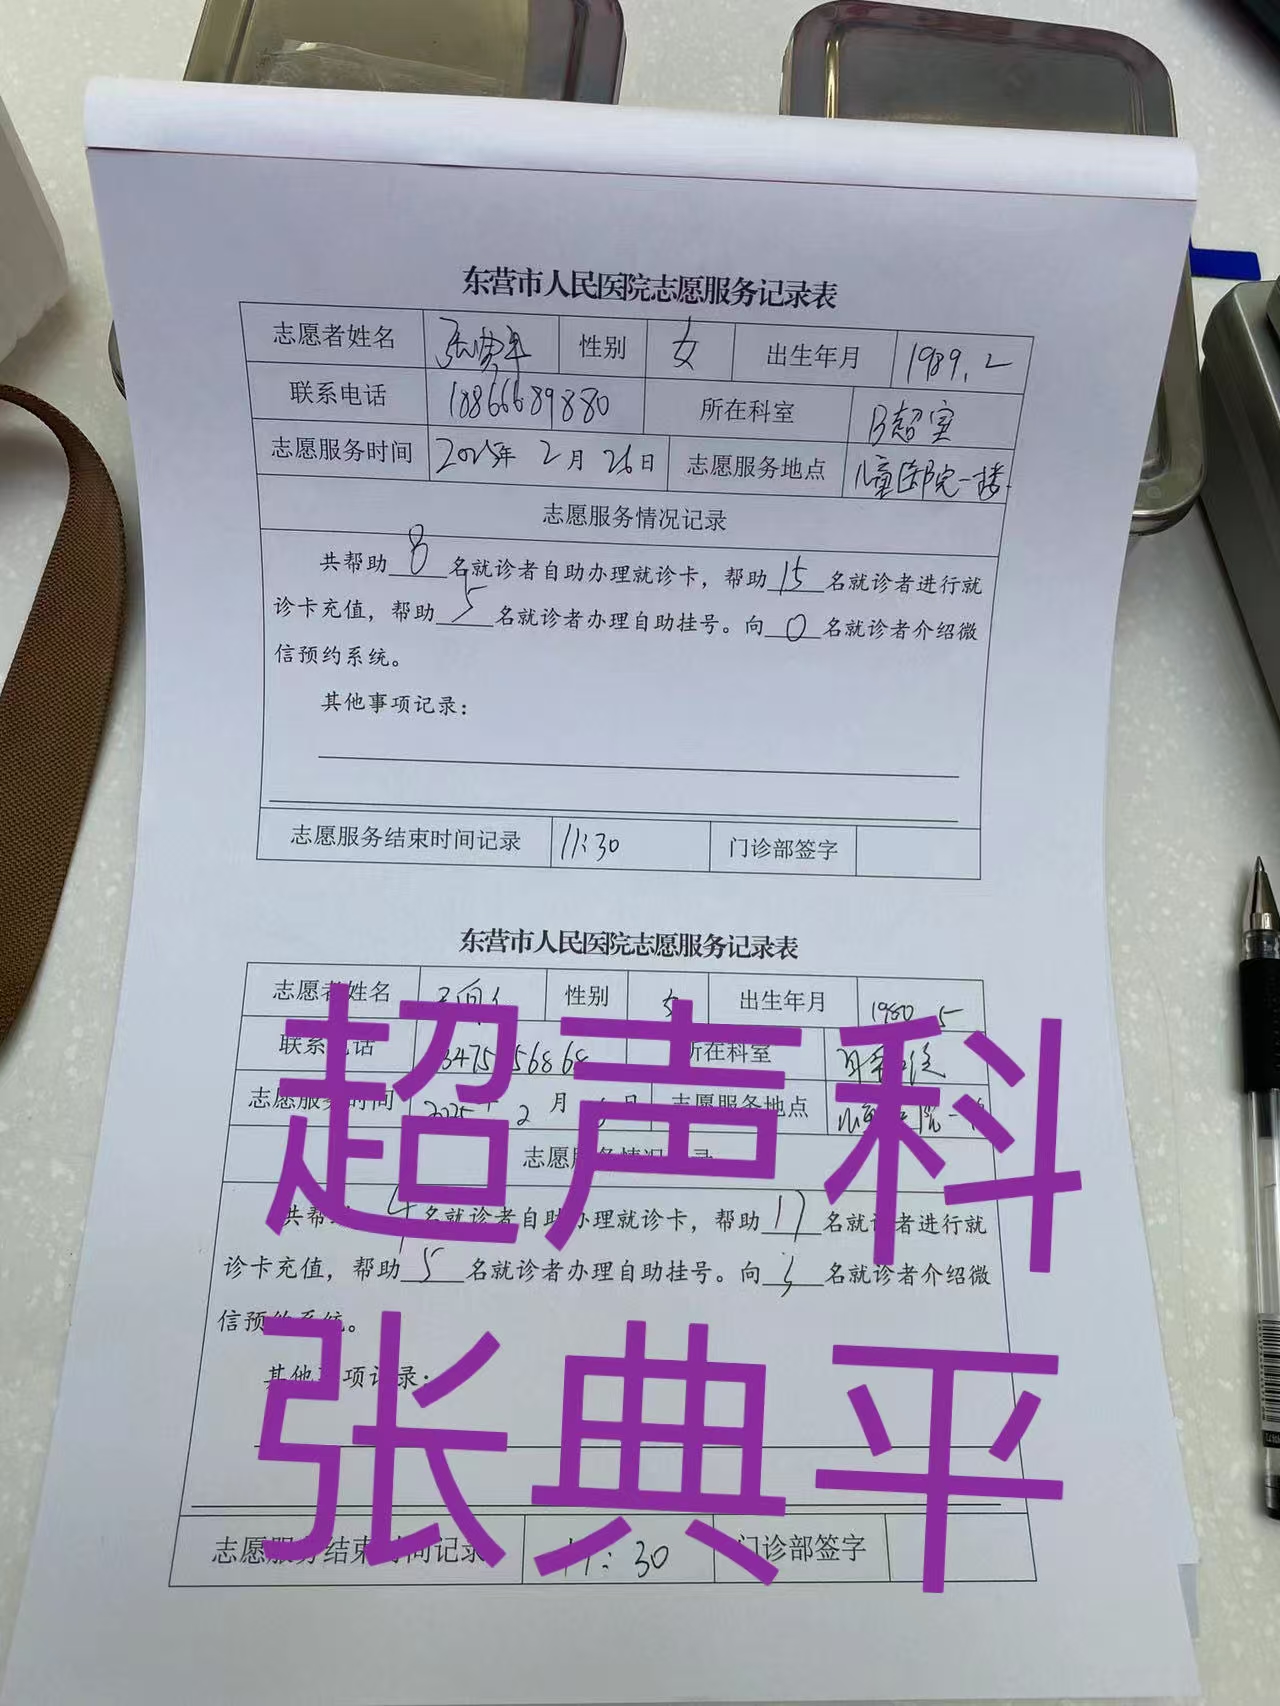 东营市人民医院志愿服务记录表
志愿者姓名 张典平 性别 女 出生年月 1989.2
联系电话 18866689880 所在科室 B超室
志愿服务时间 2025年 2月 26日 志愿服务地点 儿童医院一楼
志愿服务情况记录
共帮助8名就诊者自助办理就诊卡，帮助15名就诊者进行就
诊卡充值，帮助5名就诊者办理自助挂号。向0名就诊者介绍微
信预约系统。
其他事项记录：
志愿服务结束时间记录 11:30 门诊部签字
东营市人民医院志愿服务记录表
志愿者姓名 性别 女 出生年月 1980.5
联系电话 所在科室
志愿服务时间 2025 2月 日 志愿服务地点
志愿服务情况记录
共帮助4名就诊者自助办理就诊卡，帮助17名就诊者进行就
诊卡充值，帮助5名就诊者办理自助挂号。向3名就诊者介绍微
信预约系统。
其他事项记录：
志愿服务结束时间记录 11:30 门诊部签字
超声科
张典平